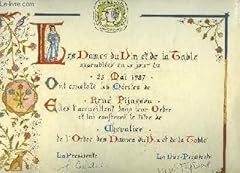 Les Dames du Vin et de la Table
assemblées en ce jour du
25 Mai 1987
Ont constaté les Mérites de
René Pijassou
et l'accueillent dans leur Ordre
et lui confèrent le titre de
Chevalier
de l'Ordre des Dames du Vin et de la Table
La Présidente
La Vice-Présidente